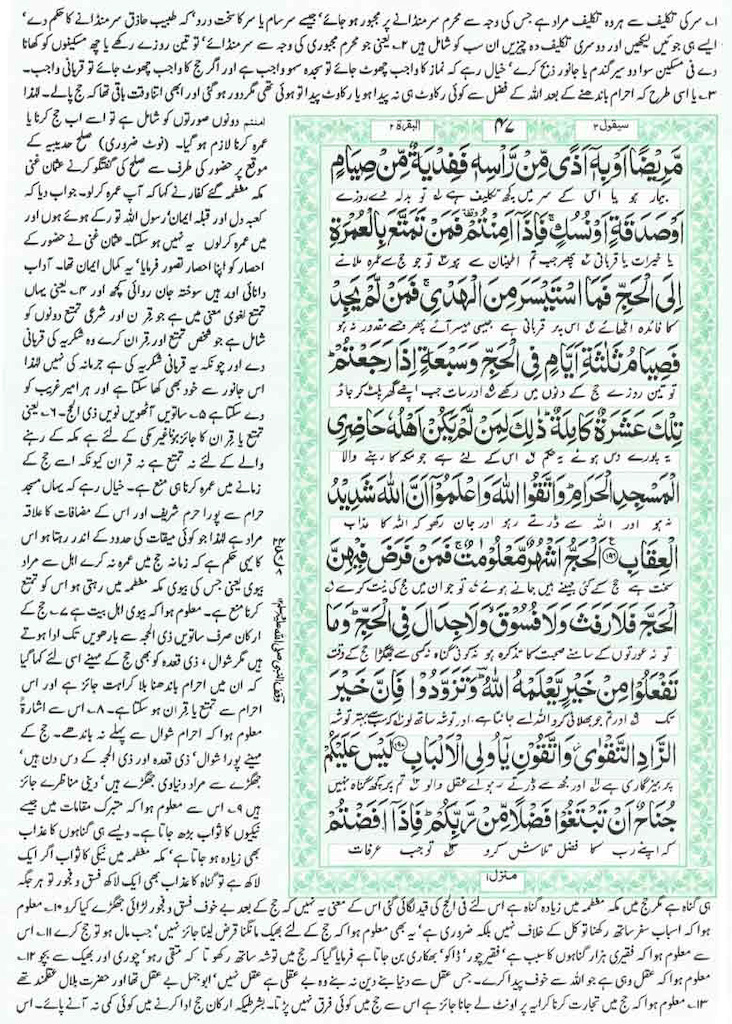 ۱۔ سر کی تکلیف سے ہر وہ تکلیف مراد ہے جس کی وجہ سے محرم سر منڈانے پر مجبور ہو جائے' جیسے سرسام یا سر کا سخت درد' کہ طبیب حاذق سر منڈانے کا حکم دے'
ایسے ہی جوئیں لیکھیں اور دوسری تکلیف دہ چیزیں ان سب کو شامل ہیں ۲۔ یعنی جو محرم مجبوری کی وجہ سے سر منڈائے' تو تین روزے رکھے یا چھ مسکینوں کو کھانا
دے فی مسکین سوا دو سیر گندم یا جانور ذبح کرے' خیال رہے کہ نماز کا واجب چھوٹ جائے تو سجدہ سہو واجب ہے اور اگر حج کا واجب چھوٹ جائے تو قربانی واجب۔
۳۔ یا اس طرح کہ احرام باندھنے کے بعد اللہ کے فضل سے کوئی رکاوٹ ہی نہ پیدا ہو یا رکاوٹ پیدا تو ہوئی تھی مگر دور ہو گئی اور ابھی اتنا وقت باقی تھا کہ حج پالے۔ لہٰذا
سیقول ۲
۴۷
البقرۃ ۲
مَّرِيْضًا اَوْ بِهٖۤ اَذًى مِّنْ رَّاْسِهٖ فَفِدْيَةٌ مِّنْ صِيَامٍ
بیمار ہو یا اس کے سر میں کچھ تکلیف ہے تو بدلہ دے روزے
اَوْ صَدَقَةٍ اَوْ نُسُكٍ ۚ فَاِذَاۤ اَمِنْتُمْ ٙ فَمَنْ تَمَتَّعَ بِالْعُمْرَةِ
یا خیرات یا قربانی پھر جب تم اطمینان سے ہو تو جو حج سے عمرہ ملانے
اِلَى الْحَجِّ فَمَا اسْتَيْسَرَ مِنَ الْهَدْيِ ۚ فَمَنْ لَّمْ يَجِدْ
کا فائدہ اٹھائے اس پر قربانی ہے جیسی میسر آئے پھر جسے مقدور نہ ہو
فَصِيَامُ ثَلٰثَةِ اَيَّامٍ فِي الْحَجِّ وَسَبْعَةٍ اِذَا رَجَعْتُمْ ؕ
تو تین روزے حج کے دنوں میں رکھے اور سات جب اپنے گھر پلٹ کر جاؤ
تِلْكَ عَشَرَةٌ كَامِلَةٌ ؕ ذٰلِكَ لِمَنْ لَّمْ يَكُنْ اَهْلُهٗ حَاضِرِي
یہ پورے دس ہوئے یہ حکم اس کے لئے ہے جو مکہ کا رہنے والا
الْمَسْجِدِ الْحَرَامِ ؕ وَاتَّقُوا اللّٰهَ وَاعْلَمُوْۤا اَنَّ اللّٰهَ شَدِيْدُ
نہ ہو اور اللہ سے ڈرتے رہو اور جان رکھو کہ اللہ کا عذاب
الْعِقَابِ ۱۹۶ اَلْحَجُّ اَشْهُرٌ مَّعْلُوْمٰتٌ ۚ فَمَنْ فَرَضَ فِيْهِنَّ
سخت ہے حج کے کئی مہینے ہیں جانے ہوئے تو جو ان میں حج کی نیت کرے
الْحَجَّ فَلَا رَفَثَ وَلَا فُسُوْقَ ۙ وَلَا جِدَالَ فِي الْحَجِّ ؕ وَمَا
تو نہ عورتوں کے سامنے صحبت کا تذکرہ ہو نہ کوئی گناہ نہ کسی سے جھگڑا حج کے وقت
تَفْعَلُوْا مِنْ خَيْرٍ يَّعْلَمْهُ اللّٰهُ ؕ وَتَزَوَّدُوْا فَاِنَّ خَيْرَ
تک اور تم جو بھلائی کرو اللہ اسے جانتا ہے اور توشہ ساتھ لو کہ سب سے بہتر توشہ
الزَّادِ التَّقْوٰى ۫ وَاتَّقُوْنِ يٰۤاُولِي الْاَلْبَابِ ۱۹۷ لَيْسَ عَلَيْكُمْ
پرہیزگاری ہے اور مجھ سے ڈرتے رہو اے عقل والو تم پر کچھ گناہ نہیں
جُنَاحٌ اَنْ تَبْتَغُوْا فَضْلًا مِّنْ رَّبِّكُمْ ؕ فَاِذَاۤ اَفَضْتُمْ
کہ اپنے رب کا فضل تلاش کرو تو جب عرفات
منزل ۱
دونوں صورتوں کو شامل ہے تو اسے اب حج کرنا یا
عمرہ کرنا لازم ہو گیا۔ (نوٹ ضروری) صلح حدیبیہ کے
موقع پر حضور کی طرف سے صلح کی گفتگو کرنے عثمان غنی
مکہ معظمہ گئے کفار نے کہا کہ آپ عمرہ کر لو۔ جواب دیا کہ
کعبہ دل اور قبلہ ایمان رسول اللہ تو رکے ہوئے ہوں اور
میں عمرہ کر لوں یہ نہیں ہو سکتا۔ عثمان غنی نے حضور کے
احصار کو اپنا احصار تصور فرمایا' یہ کمال ایمان تھا۔ آداب
دانائی اور ہیں سوختہ جان روائی کچھ اور ۴۔ یعنی یہاں
تمتع لغوی معنی میں ہے جو قران اور شرعی تمتع دونوں کو
شامل ہے جو شخص تمتع اور قران کرے وہ شکریہ کی قربانی
دے اور چونکہ یہ قربانی شکریہ کی ہے جرمانہ کی نہیں لہٰذا
اس جانور سے خود بھی کھا سکتا ہے اور ہر امیر غریب کو
دے سکتا ہے ۵۔ ساتویں آٹھویں نویں ذی الحج۔ ۶۔ یعنی
تمتع یا قران کا جائز ہونا غیر مکی کے لئے ہے مکہ کے رہنے
والے کے لئے نہ تمتع ہے نہ قران کیونکہ اسے حج کے
زمانے میں عمرہ کرنا ہی منع ہے۔ خیال رہے کہ یہاں مسجد
حرام سے پورا حرم شریف اور اس کے مضافات کا علاقہ
مراد ہے لہٰذا جو کوئی میقات کی حدود کے اندر رہتا ہو اس
کا یہی حکم ہے کہ زمانہ حج میں عمرہ نہ کرے اہل سے مراد
بیوی یعنی جس کی بیوی مکہ معظمہ میں رہتی ہو اس کو تمتع
کرنا منع ہے۔ معلوم ہوا کہ بیوی اہل بیت ہے ۷۔ حج کے
ارکان صرف ساتویں ذی الحجہ سے بارھویں تک ادا ہوتے
ہیں مگر شوال، ذی قعدہ کو بھی حج کے مہینے اسی لئے کہا گیا
کہ ان میں احرام باندھنا بلا کراہت جائز ہے اور اس
احرام سے تمتع یا قران ہو سکتا ہے۔ ۸۔ اس سے اشارۃً
معلوم ہوا کہ احرام شوال سے پہلے نہ باندھے۔ حج کے
مہینے پورا شوال' ذی قعدہ اور ذی الحجہ کے دس دن ہیں'
جھگڑے سے مراد دنیاوی جھگڑے ہیں' دینی مناظرے جائز
ہیں ۹۔ اس سے معلوم ہوا کہ متبرک مقامات میں جیسے
نیکیوں کا ثواب بڑھ جاتا ہے۔ ویسے ہی گناہوں کا عذاب
بھی زیادہ ہو جاتا ہے' مکہ معظمہ میں نیکی کا ثواب اگر ایک
لاکھ ہے تو گناہ کا عذاب بھی ایک لاکھ فسق و فجور تو ہر جگہ
وقف النبی صلی اللہ علیہ وسلم
ہی گناہ ہے مگر حج میں مکہ معظمہ میں زیادہ گناہ ہے اس لئے فی الحج کی قید لگائی گئی اس کے معنی یہ نہیں کہ حج کے بعد بے خوف فسق و فجور لڑائی جھگڑے کیا کرو ۱۰۔ معلوم
ہوا کہ اسباب سفر ساتھ رکھنا توکل کے خلاف نہیں بلکہ ضروری ہے' یہ بھی معلوم ہوا کہ حج کے لئے بھیک مانگنا قرض لینا جائز نہیں' جب مال ہو تو حج کرے ۱۱۔ اس
سے معلوم ہوا کہ فقیری ہزار گناہوں کا سبب ہے' فقیر چور' ڈاکو' بھکاری بن جاتا ہے فرمایا گیا کہ حج میں توشہ ساتھ رکھو تا کہ متقی رہو' چوری اور بھیک سے بچو ۱۲۔
معلوم ہوا کہ عقل وہی ہے جو اللہ سے خوف پیدا کرے۔ جس عقل سے دنیا بنے دین نہ بنے وہ بے عقلی ہے عقل نہیں' ابوجہل بے عقل تھا اور حضرت بلال عقلمند تھے
۱۳۔ معلوم ہوا کہ حج میں تجارت کرنا کرایہ پر اونٹ لے جانا جائز ہے اس سے حج میں کوئی فرق نہیں پڑتا۔ بشرطیکہ ارکان حج ادا کرنے میں کوئی کمی نہ آنے پائے۔ اس